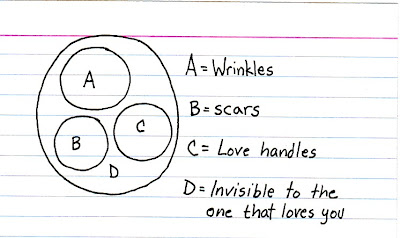 A
B
C
D
A = Wrinkles
B = scars
C = Love handles
D = Invisible to the
one that loves you